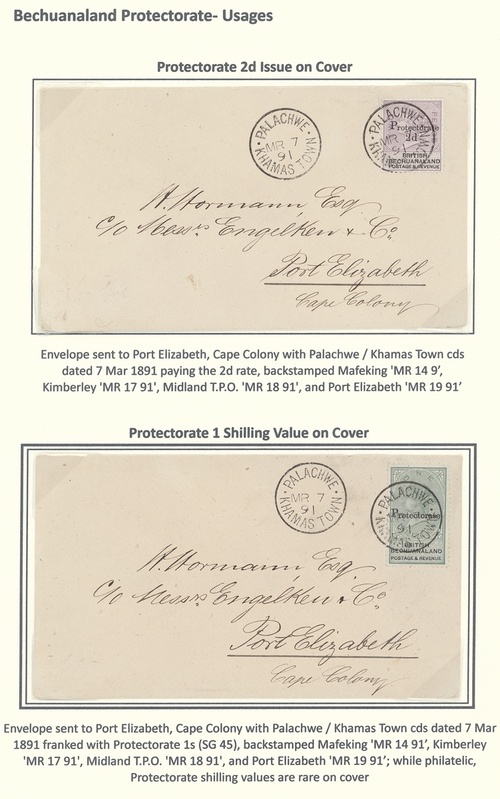 Bechuanaland Protectorate- Usages
Protectorate 2d Issue on Cover
PALACHWE
MR 7
91
KHAMAS TOWN
PALACHWE
MR
91
Protectorate
2d
BRITISH
BECHUANALAND
POSTAGE & REVENUE
H. Hormann, Esq
c/o Messrs Engelken & Co.
Port Elizabeth
Cape Colony
Envelope sent to Port Elizabeth, Cape Colony with Palachwe / Khamas Town cds
dated 7 Mar 1891 paying the 2d rate, backstamped Mafeking 'MR 14 9’,
Kimberley 'MR 17 91', Midland T.P.O. 'MR 18 91', and Port Elizabeth 'MR 19 91’
Protectorate 1 Shilling Value on Cover
PALACHWE
MR 7
91
KHAMAS TOWN
PALACHWE
Protectorate
91
BRITISH
BECHUANALAND
POSTAGE & REVENUE
H. Hormann, Esq
c/o Messrs Engelken & Co.
Port Elizabeth
Cape Colony
Envelope sent to Port Elizabeth, Cape Colony with Palachwe / Khamas Town cds dated 7 Mar
1891 franked with Protectorate 1s (SG 45), backstamped Mafeking 'MR 14 91’, Kimberley
'MR 17 91', Midland T.P.O. 'MR 18 91', and Port Elizabeth 'MR 19 91’; while philatelic,
Protectorate shilling values are rare on cover